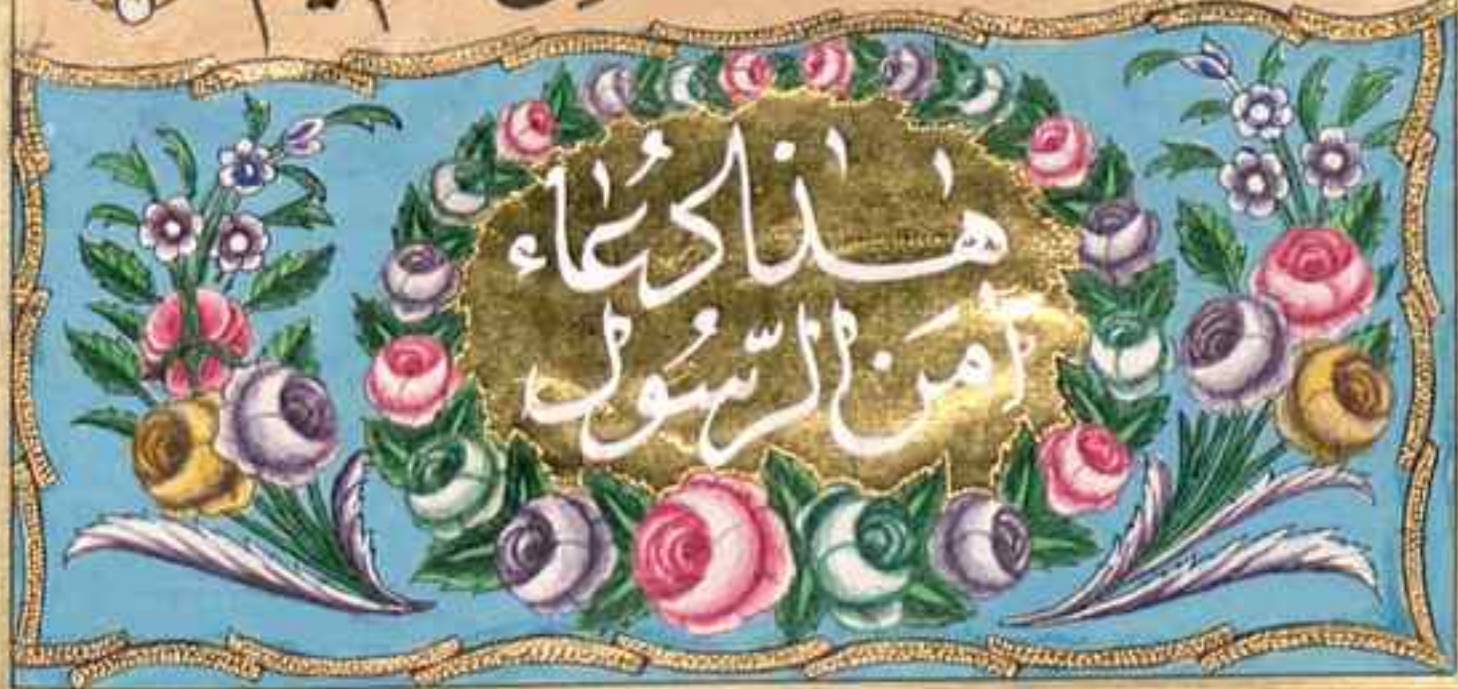 هٰذا دُعاء
اٰمَنَ الرّسُول